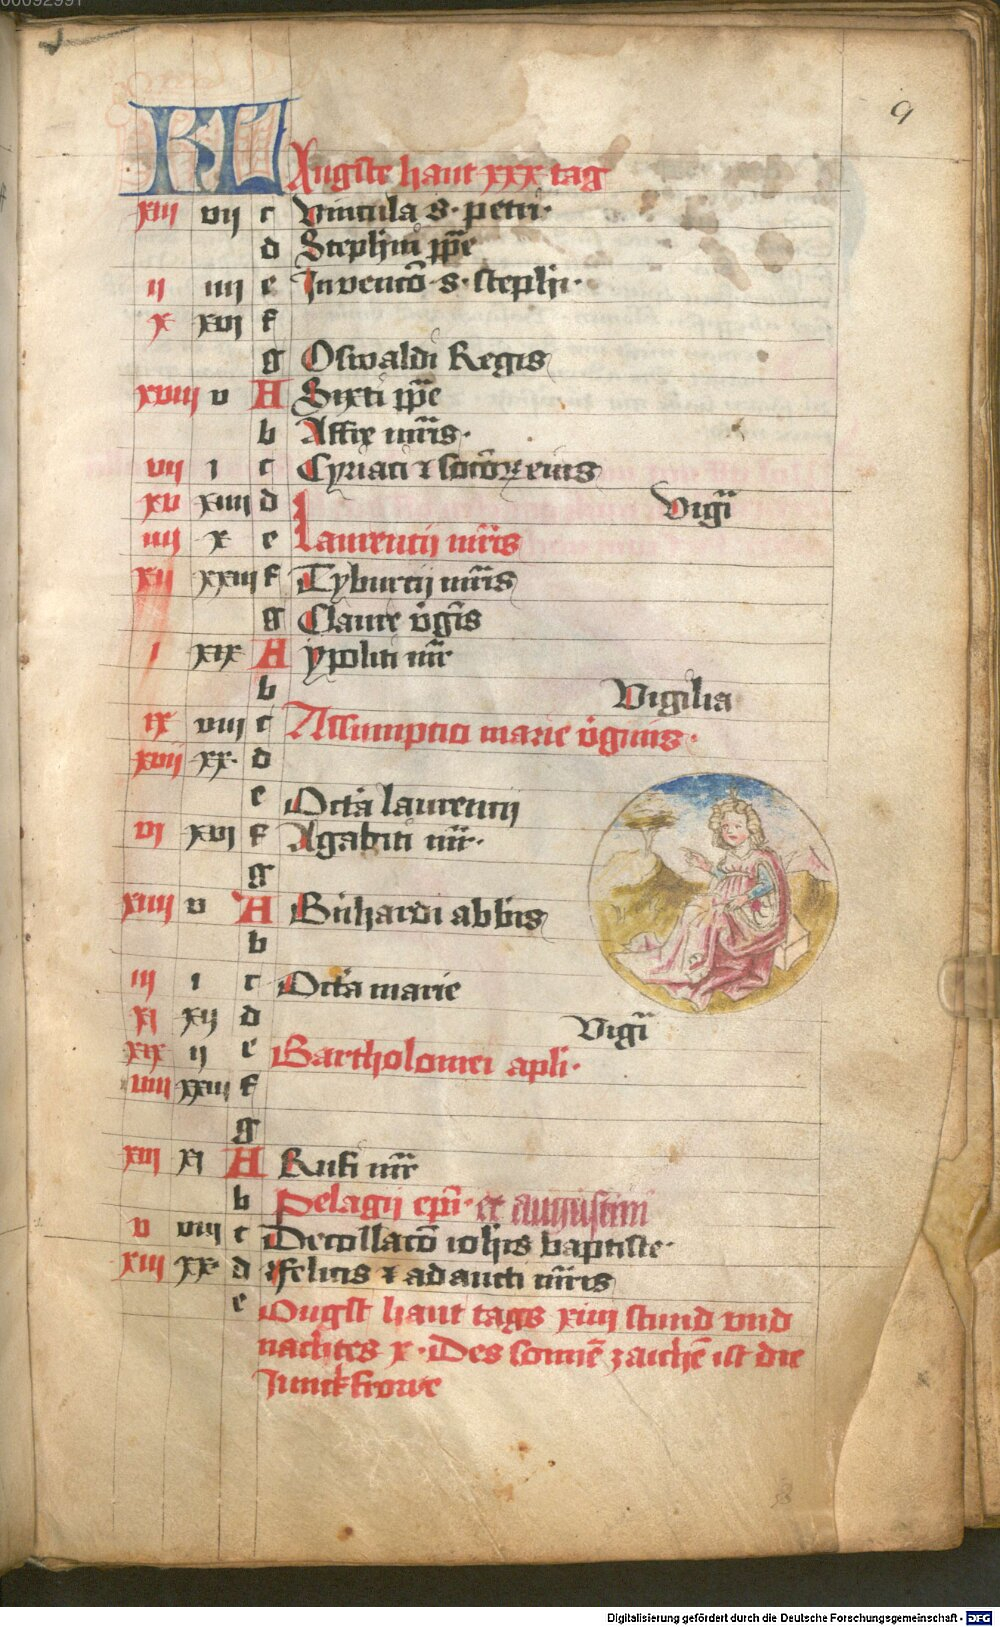 00092991
9
KL
Augste hant xxx tag
xiii vii c Vincula s. petri.
d Stephni pp̄e
ii iiii e Invencō s. stephi.
x xvi f
g Oswaldi Regis
xviii v A Sixti pp̄e
b Affre mr̄is.
vii i c Cyriaci ⁊ socōꝝ eius
xv xiiii d Vigī
iiii x e Laurencii mr̄is
xii xxiii f Tyburcii mr̄is
g Clare v̄gīs
i xix A ypoliti mr̄
b Vigilia
ix viii c Assumptio marie v̄ginis.
xvii xx. d
e Octā laurencii
vi xvi f Agabiti mr̄.
g
xiiii v A Bn̄hardi abb̄is
b
iii i c Octā marie
xi xii d Vigī
xix ii e Bartholomei apli.
viii xxiii f
g
xiii xi A Rufi mr̄
b Pelagii epī. et augustini
v viii c Decollacō ioh̄is baptiste.
xiii xx. d felicis ⁊ adaucti mr̄is
e Ougst hant tags xiiii stund vnd
nachtes x. Des sonnē zaichē ist die
Junckfrowe
Digitalisierung gefördert durch die Deutsche Forschungsgemeinschaft - DFG